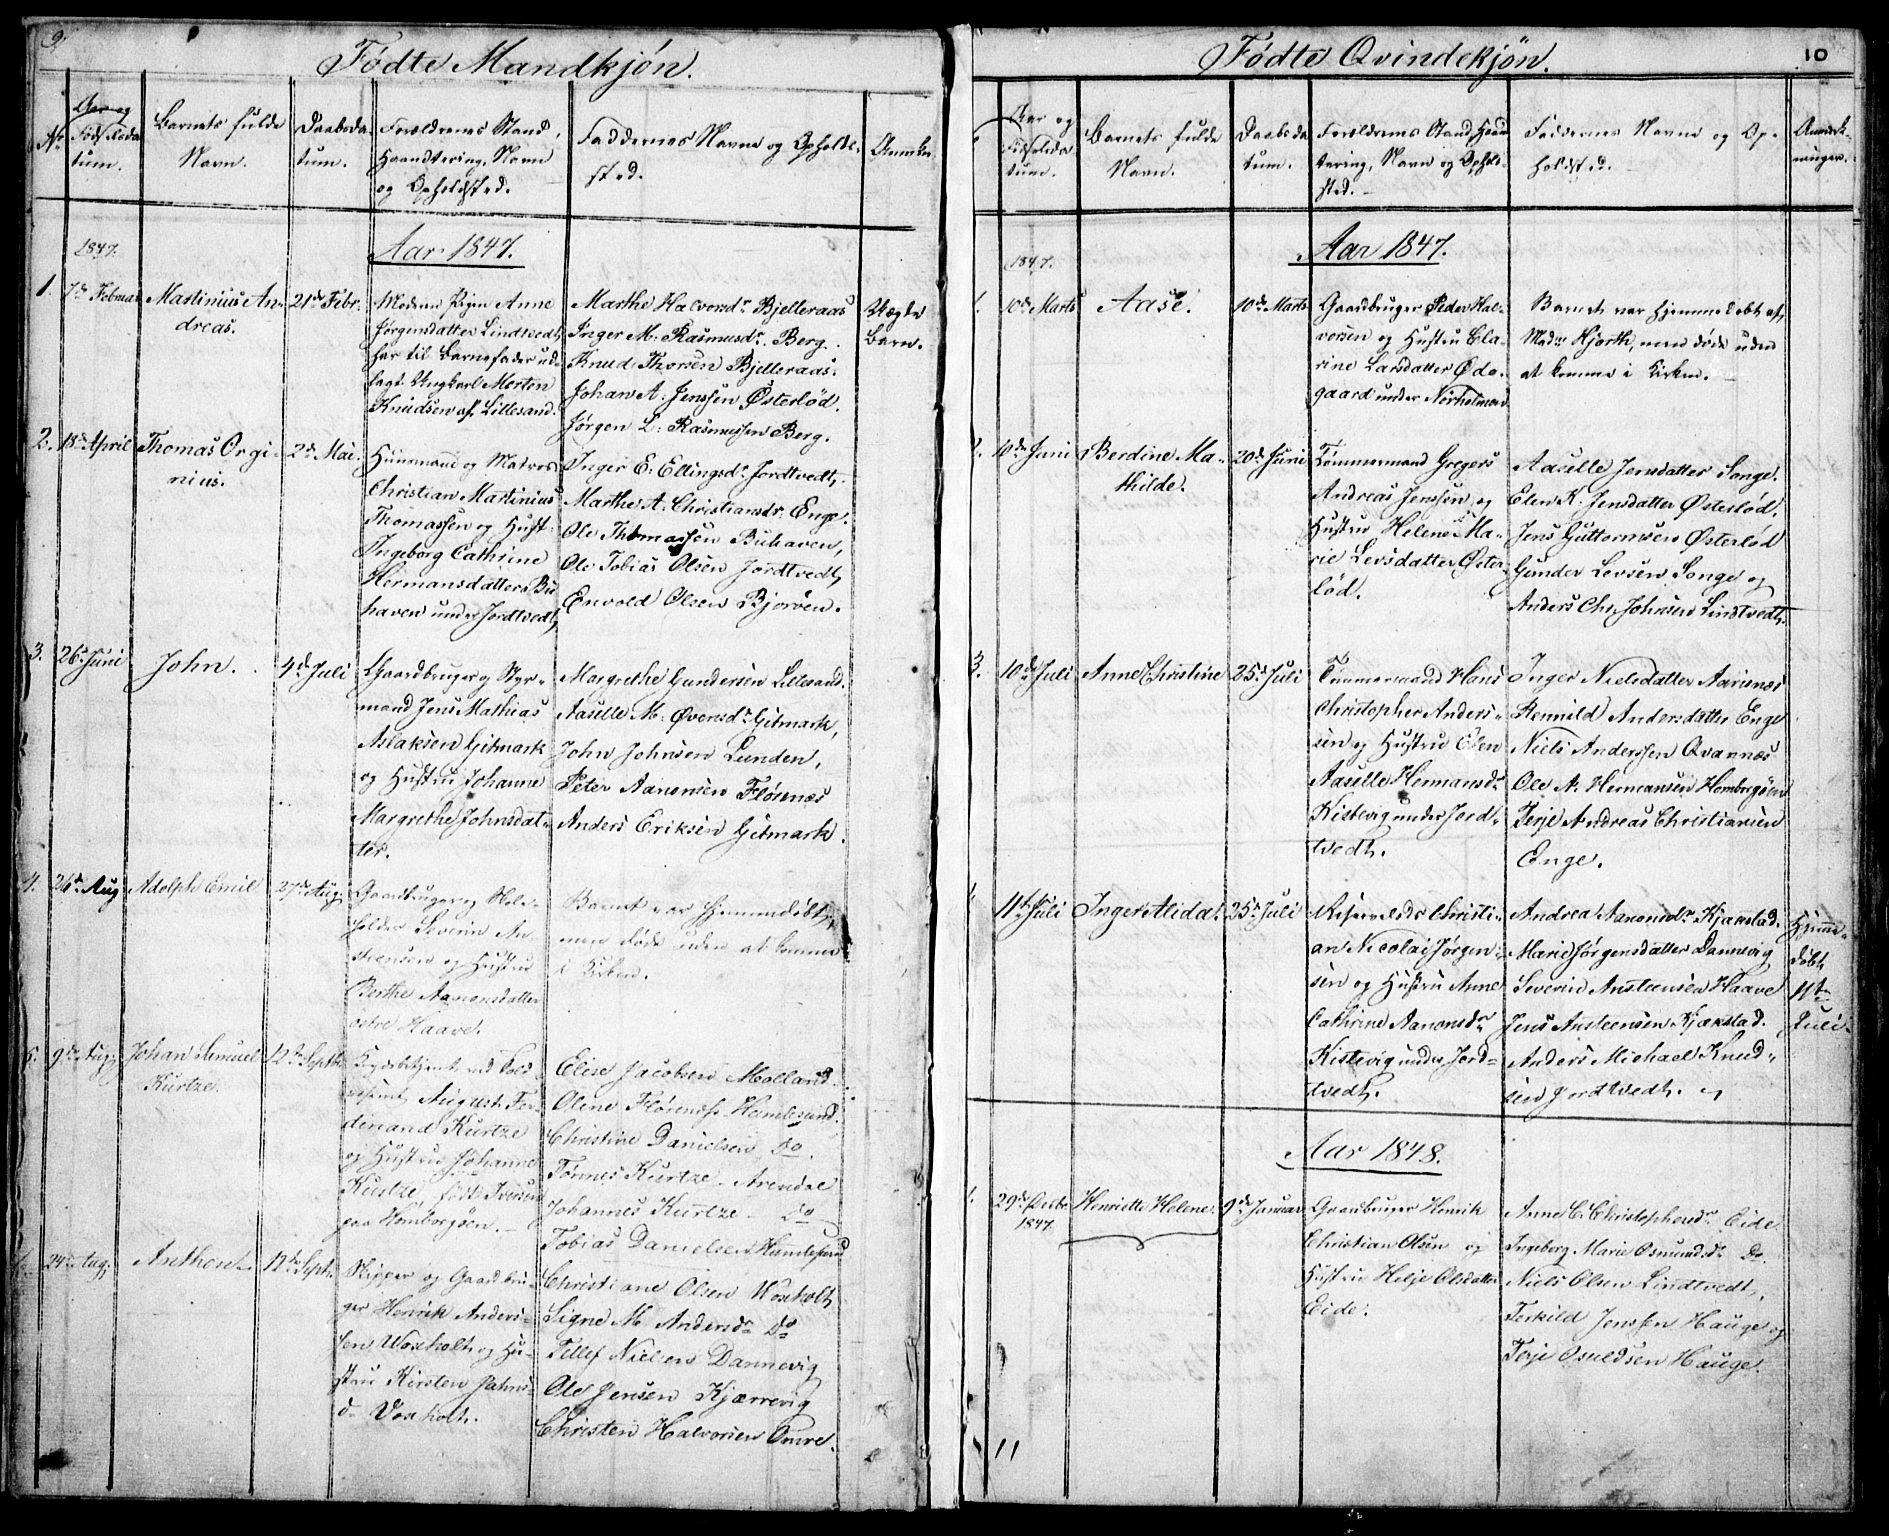 9.
Fødte Mandkjön.
No
Aar og
Fødselsda
tum.
Barnets fulde
Navn.
Daabsda-
tum.
Forældrenes Stand,
Haandtering, Navn
og Opholdsted.
Faddernes Navne og Opholds-
sted.
Anmerkn.
1847.
Aar 1847.
1.
7de Februar
Martinius An-
dreas.
21de Febr.
Moderen Pigen Anne
Jørgensdatter Lindtvedt,
har til Barnefader ud-
lagt Ungkarl Morten
Knudsen af Lillesand.
Marthe Halvorsdr Bjelleraas
Inger M. Rasmusdr. Berg.
Knud Thorsen Bjelleraas.
Johan A. Jenssen Østerlød.
Jørgen L. Rasmussen Berg.
Uægte
Barn.
2.
18de April
Thomas Orgi-
nius.
2de Mai.
Huusmand og Matros
Christian Martinius
Thomassen og Hust.
Ingeborg Cathrine
Hermansdatter Bu
haven under Jordtvedt,
Inger E. Ellingsdr. Jordtvedt,
Marthe A. Christiansdr. Enge.
Ole Thomassen Buhaven,
Ole Tobias Olsen Jordtvedt,
Envold Olsen Bjorven.
3.
26de Juni
John.
4de Juli
Gaardbruger og Styr-
mand Jens Mathias
Aslaksen Gitmark
og Hustru Johanne
Margrethe Johnsdat-
ter.
Margrethe Gundersen Lillesand.
Aaselle M. Øvensdr. Gitmark,
John Johnsen Lunden,
Peter Aanonsen Flörenæs
Anders Eriksen Gitmark.
4.
26de Aug
Adolph Emil
27de Aug.
Gaardbruger og
holder Severin An
stensen og Hustru
Berthe Aanonsdatter
østre Haave.
Barnet var hjemmedøbt,
men døde uden at komme
i Kirken.
5.
9de Aug.
Johan Samuel
Kurtze.
12te Septb.
Krydsbetjent ved Told
væsenet August Fer-
dinand Kurtze
og Hustru Johanne
Kurtze, født Iversen
paa Homborsøen.
Elise Jacobsen Molland.
Oline Flörenæs Humlesund.
Christine Danielsen Do.
Tönnes Kurtze - Arendal
Johannes Kurtze - Do
Tobias Danielsen Humlesund
24de Aug.
Anthon
12te Sept.
Skipper og Gaardbru-
ger Henrik Anders-
sen Woxholt og Hu-
stru Kirsten
d. Voxholt.
Christiane Olsen Woxholt,
Signe M. Andersdr Do
Tellef Nielsen Dannevig
Ole Jensen Kjærrevig
Christen Halvorsen Omre.
10
Fødte Qvindekjön.
Aar og
Fødselsda
tum.
Barnets fulde
Navn.
Daabsda
tum.
Forældrenes Stand, Haan
tering, Navn og Ophold-
sted.
Faddernes Navne og Op-
holdsted.
Anmerk-
ninger.
1847.
Aar 1847.
1.
10de Marts
Aase.
10de Marts
Gaardbruger Peder Hal-
vorsen og Hustru Cla-
rine Larsdatter Øde-
gaard under Nörholmen
Barnet var hjemmedøbt af
Madm Hjorth, men döde uden
at komme i Kirken.
2.
10de Juni
Berdine Ma-
thilde.
20de Juni
Tömmermand Gregers
Andreas Jenssen og
Hustru Helene Ma-
rie Levsdatter Øster-
lød.
Aaselle Jensdatter Songe.
Elen K. Jensdatter Østerlød,
Jens Guttormsen Østerlød
Gunder Levsen Songe og
Anders Chr. Johnsen Lindtvedt.
3.
10de Juli
Anne Christine
25de Juli
Tömmermand Hans
Christopher Anders-
sen og Hustru Elen
Aaselle Hermansdr
Kistevig under Jord-
tvedt.
Inger Nielsdatter Aarnæs
Rennild Andersdatter Enge
Niels Anderssen Qvannæs
Ole N. Hermansen Homborgöen
Terje Andreas Christiansen
Enge.
11te Juli
Inger Alida.
25de Juli
Christi-
an Nicolai Jørgen-
sen og Hustru Anne
Cathrine Aanonsdr
Kistevig under Jord-
tvedt.
Andrea Aanonsdr Kjærstad.
Marie Jørgensdatter Dannevig
Severin Ansteensen Haave
Jens Ansteensen Kjærstad.
Anders Michael Knud-
sen Jordtvedt.
Hjemme-
døbt
11te
Juli
Aar 1848.
1.
29de Decbr
1847.
Henriette Helene.
9de Januar
Gaardbruger Henrik
Christian Olsen og
Hustru Helje Olsdatter
Eide.
Anne C. Christophersdr Eide
Ingeborg Marie Osmundsdr Do.
Niels Olsen Lindtvedt,
Terkild Jenssen Hauge og
Terje Osuldsen Hauge.
11